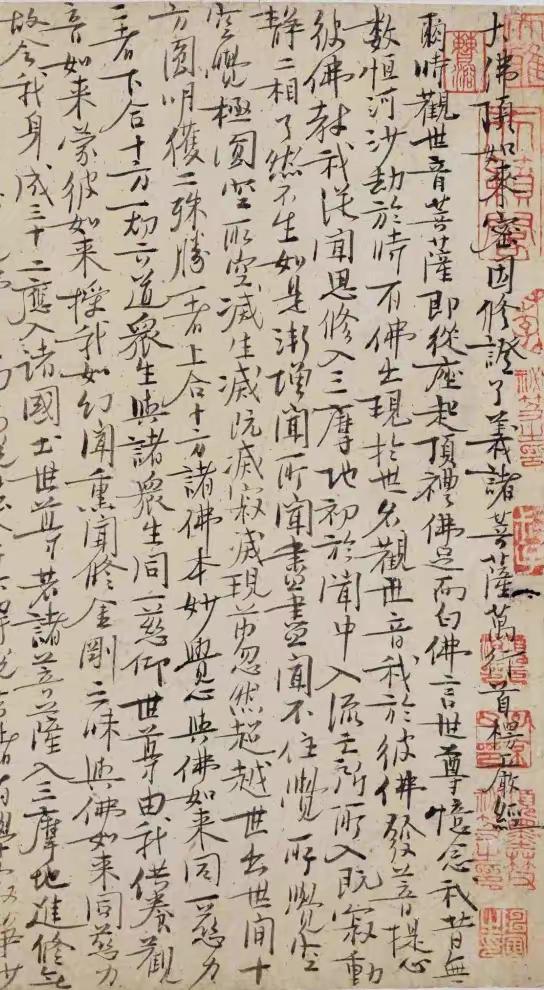 大佛頂如來密因修證了義諸菩薩萬行首楞嚴經
爾時觀世音菩薩即從座起頂禮佛足而白佛言世尊憶念我昔無
數恒河沙劫於時有佛出現於世名觀世音我於彼佛發菩提心
彼佛教我從聞思修入三摩地初於聞中入流亡所所入既寂動
靜二相了然不生如是漸增聞所聞盡盡聞不住覺所覺空
空覺極圓空所空滅生滅既滅寂滅現前忽然超越世出世間十
方圓明獲二殊勝一者上合十方諸佛本妙覺心與佛如來同一慈力
二者下合十方一切六道衆生與諸衆生同一悲仰世尊由我供養觀
音如來蒙彼如來授我如幻聞熏聞修金剛三昧與佛如來同慈力
故令我身成三十二應入諸國土世尊若諸菩薩入三摩地進修無